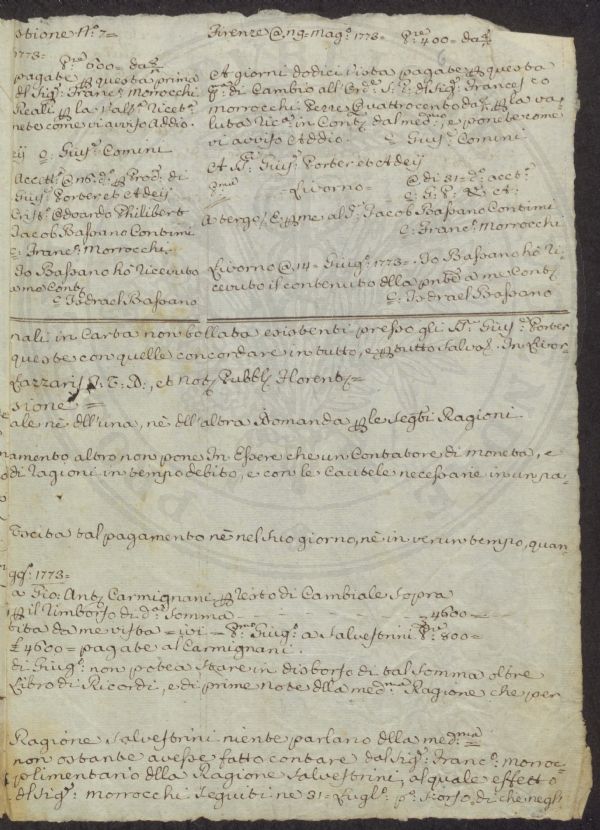 stione N.º 7=
1773=
pagate questa prima
del Sig.r Franc.º Morrocchi
Reali la Val.ta Ricev.ta
nete come vi avviso Addio.
C. Gius.e Comini
Gius.e Porter et Adeij
Crist.º Edoardo Philibert
Jacob Bassano Contimi
C. Franc.º Morrocchi.
Io Bassano hò Ricevuto
C. Isdrael Bassano
Firenze @ 29 Mag.º 1773= P.re 400= da 8/R
A giorni dodici Vista pagate questa
p.a di Cambio all'Or.e S. P. del Sig.r Francesco
Morrocchi Pezze Quattrocento da 8/R la va-
luta Ric.ta in Cont.i dal med.mo, e ponete come
vi avviso Addio. C. Gius.e Comini
A S.ri Gius.e Porter et Adeij
p.ma =Livorno= @ di 31 d.º acct.a
C. G. P. et A.
A tergo, E me al S.r Jacob Bassano Contimi
C. Franc.º Morrocchi
Livorno @ 14= Giug.º 1773= Io Bassano hò Ri-
cevuto il contenuto della pnte a me Cont.i
C. Isdrael Bassano
nali in Carta non bollata esistenti presso gli S.ri Gius.e Porter
queste con quelle concordare in tutto, e tutto salvo. In Livor
Lazzaris J. V. D., et Not.s Pubb.s Florent.s=
sione=
ale nè dell'una, nè dell'altra Domanda le Seg.ti Ragioni
namento altro non pone In Essere che un Contatore di moneta, e
di ragioni in tempo debito, e con le Cautele necessarie in un pa-
Uscita tal pagamento nè nel suo giorno, nè in verun tempo, quan
gg.º 1773=
a Gio. Ant.º Carmignani Resto di Cambiale Sopra
il Rimborso di d.a Somma £ 4600=
tita da me vista = ivi = P.mo Giug.º a Salvestrini P.re 800=
£ 4600= pagate al Carmignani.
di Giug.º non potea Stare in disborso di tal Somma oltre
Libro di Ricordi, e di prime note della med.ma Ragione che per
Ragione Salvestrini niente parlano della med.ma
non ostante avesse fatto contare dal Sig.r Franc.º Morroc-
plimentario della Ragione Salvestrini, al quale effetto
del Sig.r Morrocchi Seguiti ne 31= Lugl.º p.º Scorso, di che negli